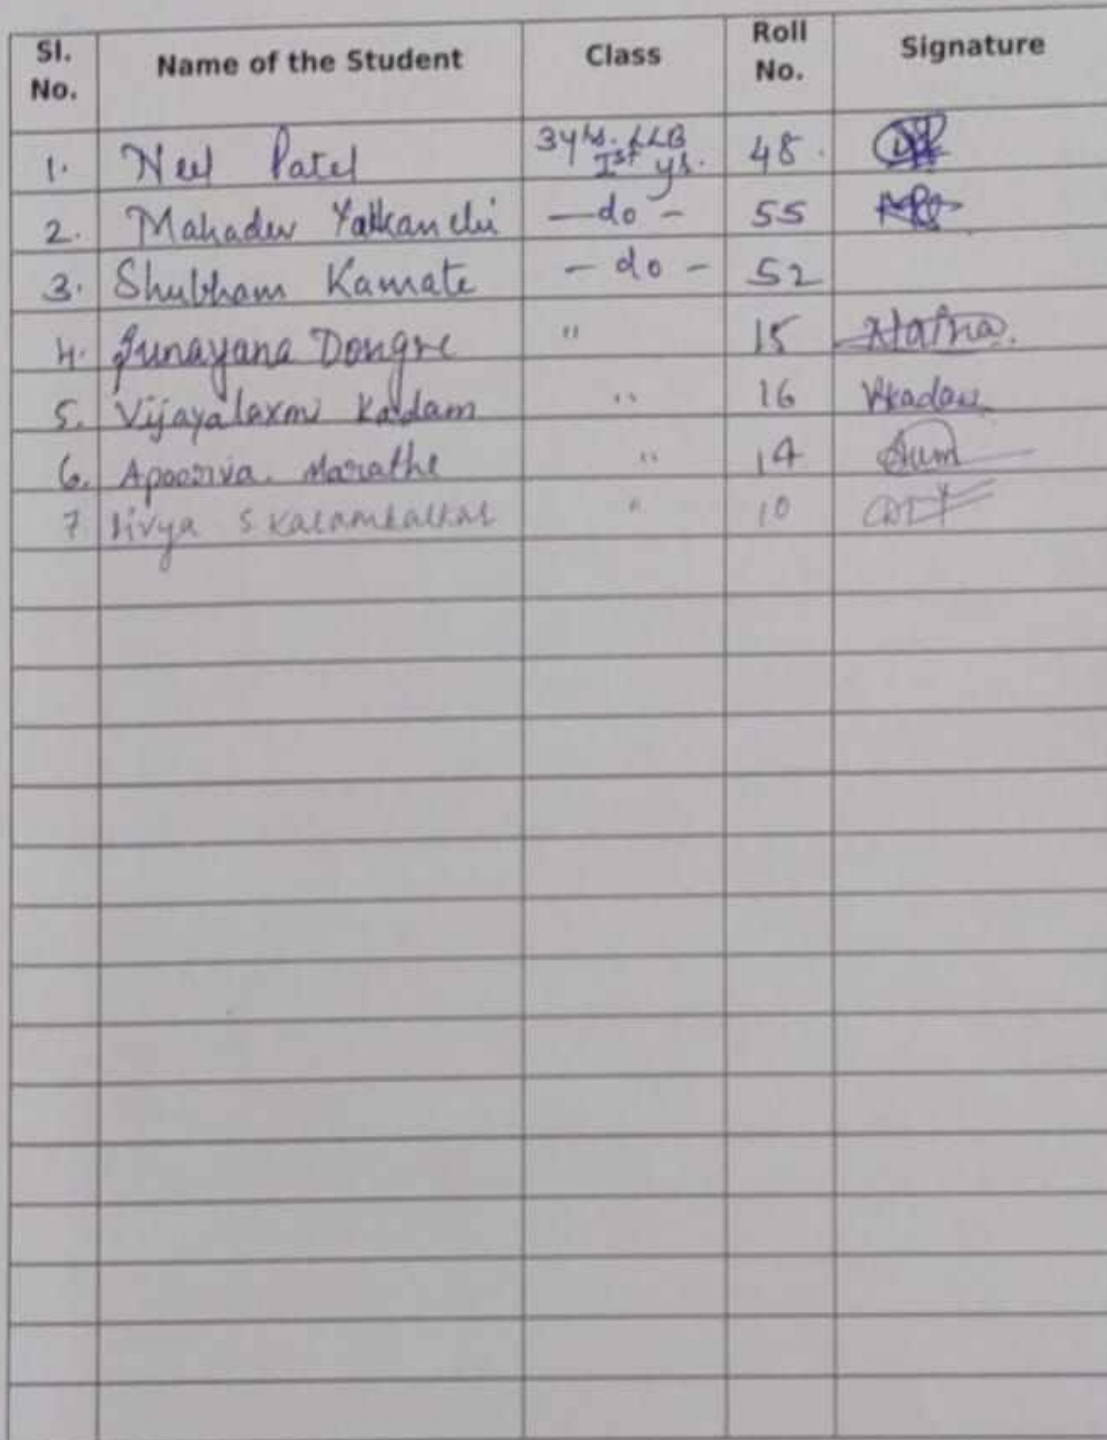 Sl. No. Name of the Student Class Roll No. Signature
1. Neel Patel 3 yrs. LLB Ist yr. 48.
2. Mahadev Yatkanchi —do— 55
3. Shubham Kamate —do— 52
4. Sunayana Dongre " 15
5. Vijayalaxmi Kadam " 16 VKadam
6. Apoorva. Marathe " 14
7 Divya S " 10